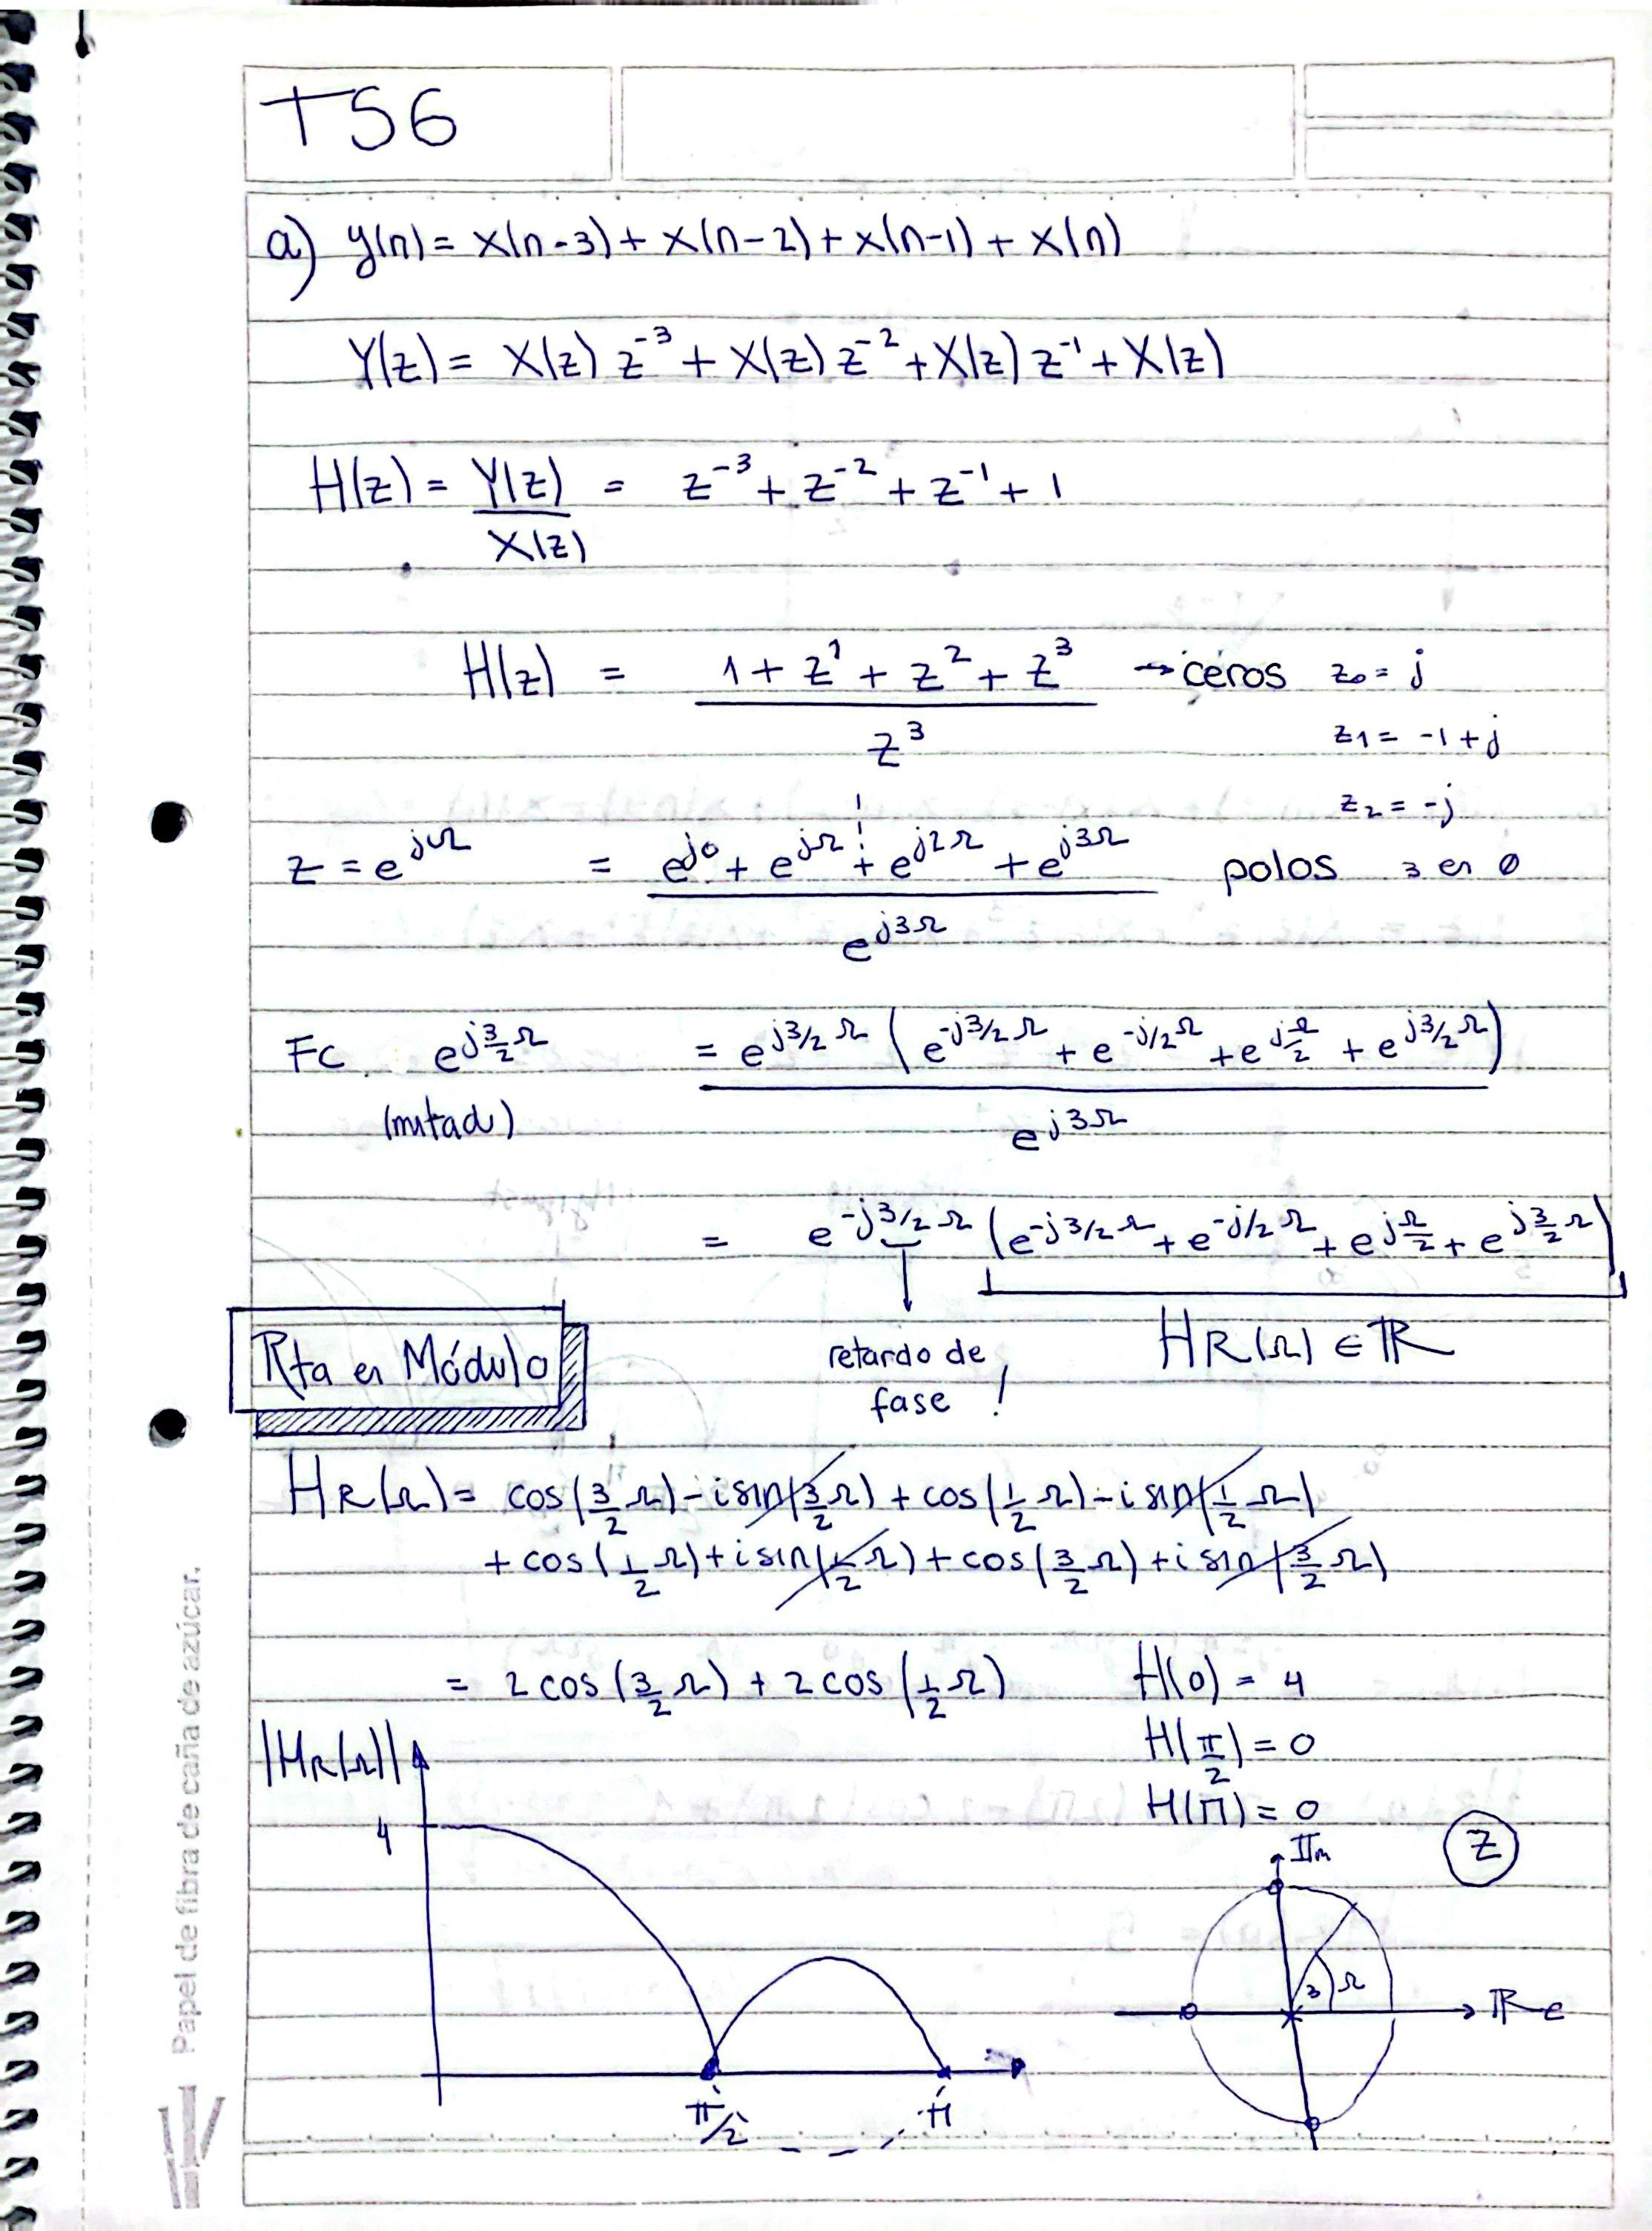 TS6
a) y(n) = x(n-3) + x(n-2) + x(n-1) + x(n)
Y(z) = X(z) z⁻³ + X(z) z⁻² + X(z) z⁻¹ + X(z)
H(z) = Y(z)/X(z) = z⁻³ + z⁻² + z⁻¹ + 1
H(z) = (1 + z¹ + z² + z³)/z³ → ceros z₀ = j
z₁ = -1 + j
z₂ = -j
z = e^{jΩ} = (e^{j0} + e^{jΩ} + e^{j2Ω} + e^{j3Ω})/e^{j3Ω} polos 3 en 0
FC. e^{j3/2Ω} = e^{j3/2Ω} (e^{-j3/2Ω} + e^{-j/2Ω} + e^{jΩ/2} + e^{j3/2Ω})/e^{j3Ω}
(mitad)
= e^{-j3/2Ω} (e^{-j3/2Ω} + e^{-j/2Ω} + e^{jΩ/2} + e^{j3/2Ω})
Rta en Módulo
retardo de
fase !
HR(Ω) ∈ ℝ
HR(Ω) = cos(3/2 Ω) - i sin(3/2 Ω) + cos(1/2 Ω) - i sin(1/2 Ω)
+ cos(1/2 Ω) + i sin(1/2 Ω) + cos(3/2 Ω) + i sin(3/2 Ω)
= 2 cos(3/2 Ω) + 2 cos(1/2 Ω) H(0) = 4
H(π/2) = 0
H(π) = 0
|HR(Ω)|
4
π/2
π
Z
Im
3
Ω
Re
Papel de fibra de caña de azúcar.